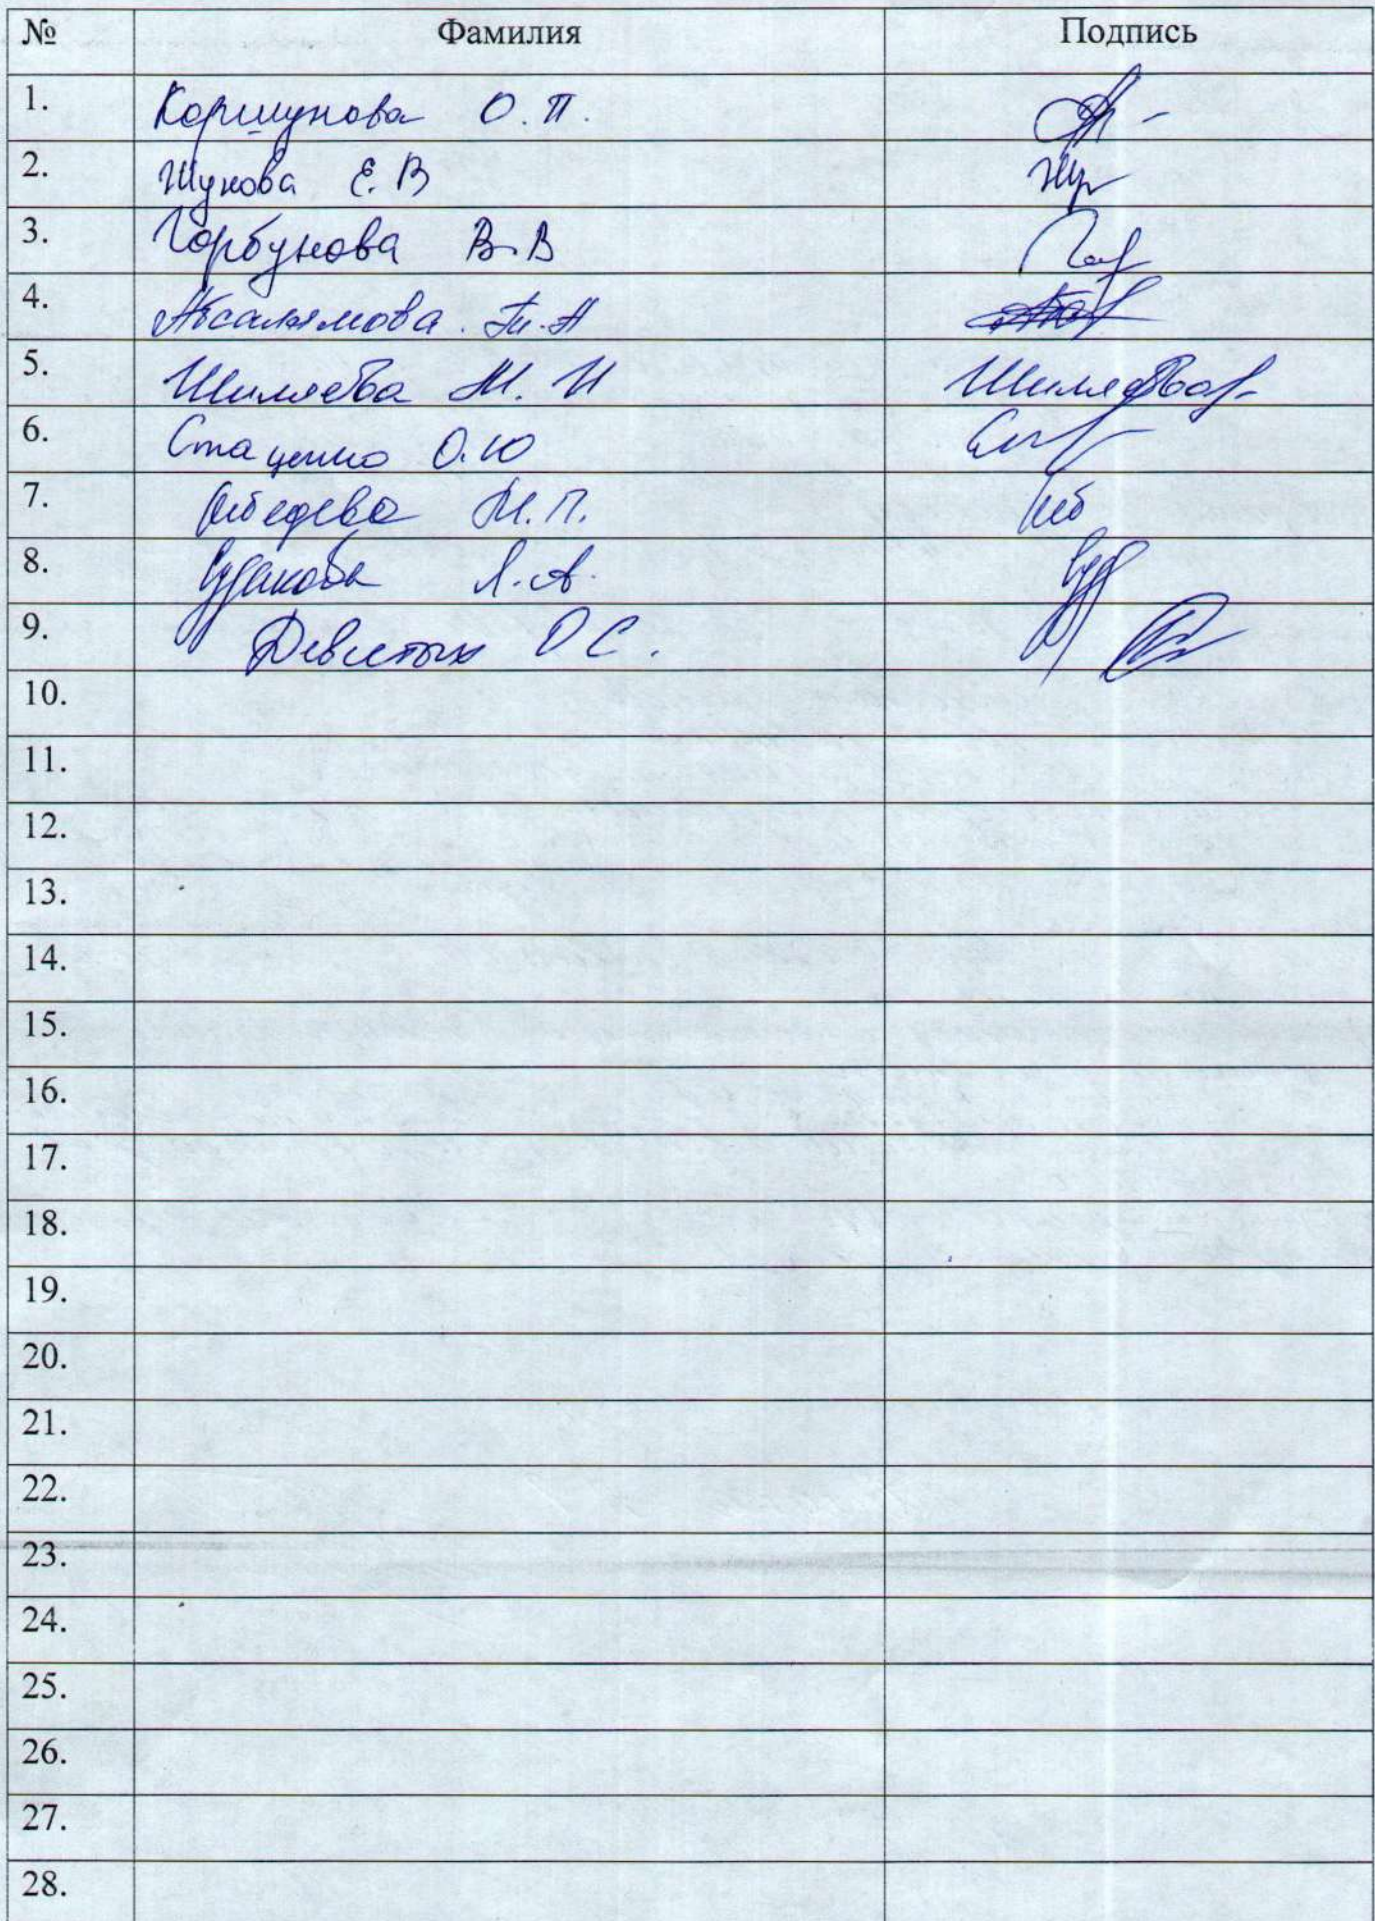 № Фамилия Подпись
1. Коршунова О.П.
2. Жукова Е.В
3. Горбунова В.В
4. Абсалямова. Т.А
5. Шиляева М.И Шиляева
6. Стаценко О.Ю
7. Лебедева М.П.
8. Судакова Л.А.
9. Девятых О С.
10.
11.
12.
13.
14.
15.
16.
17.
18.
19.
20.
21.
22.
23.
24.
25.
26.
27.
28.